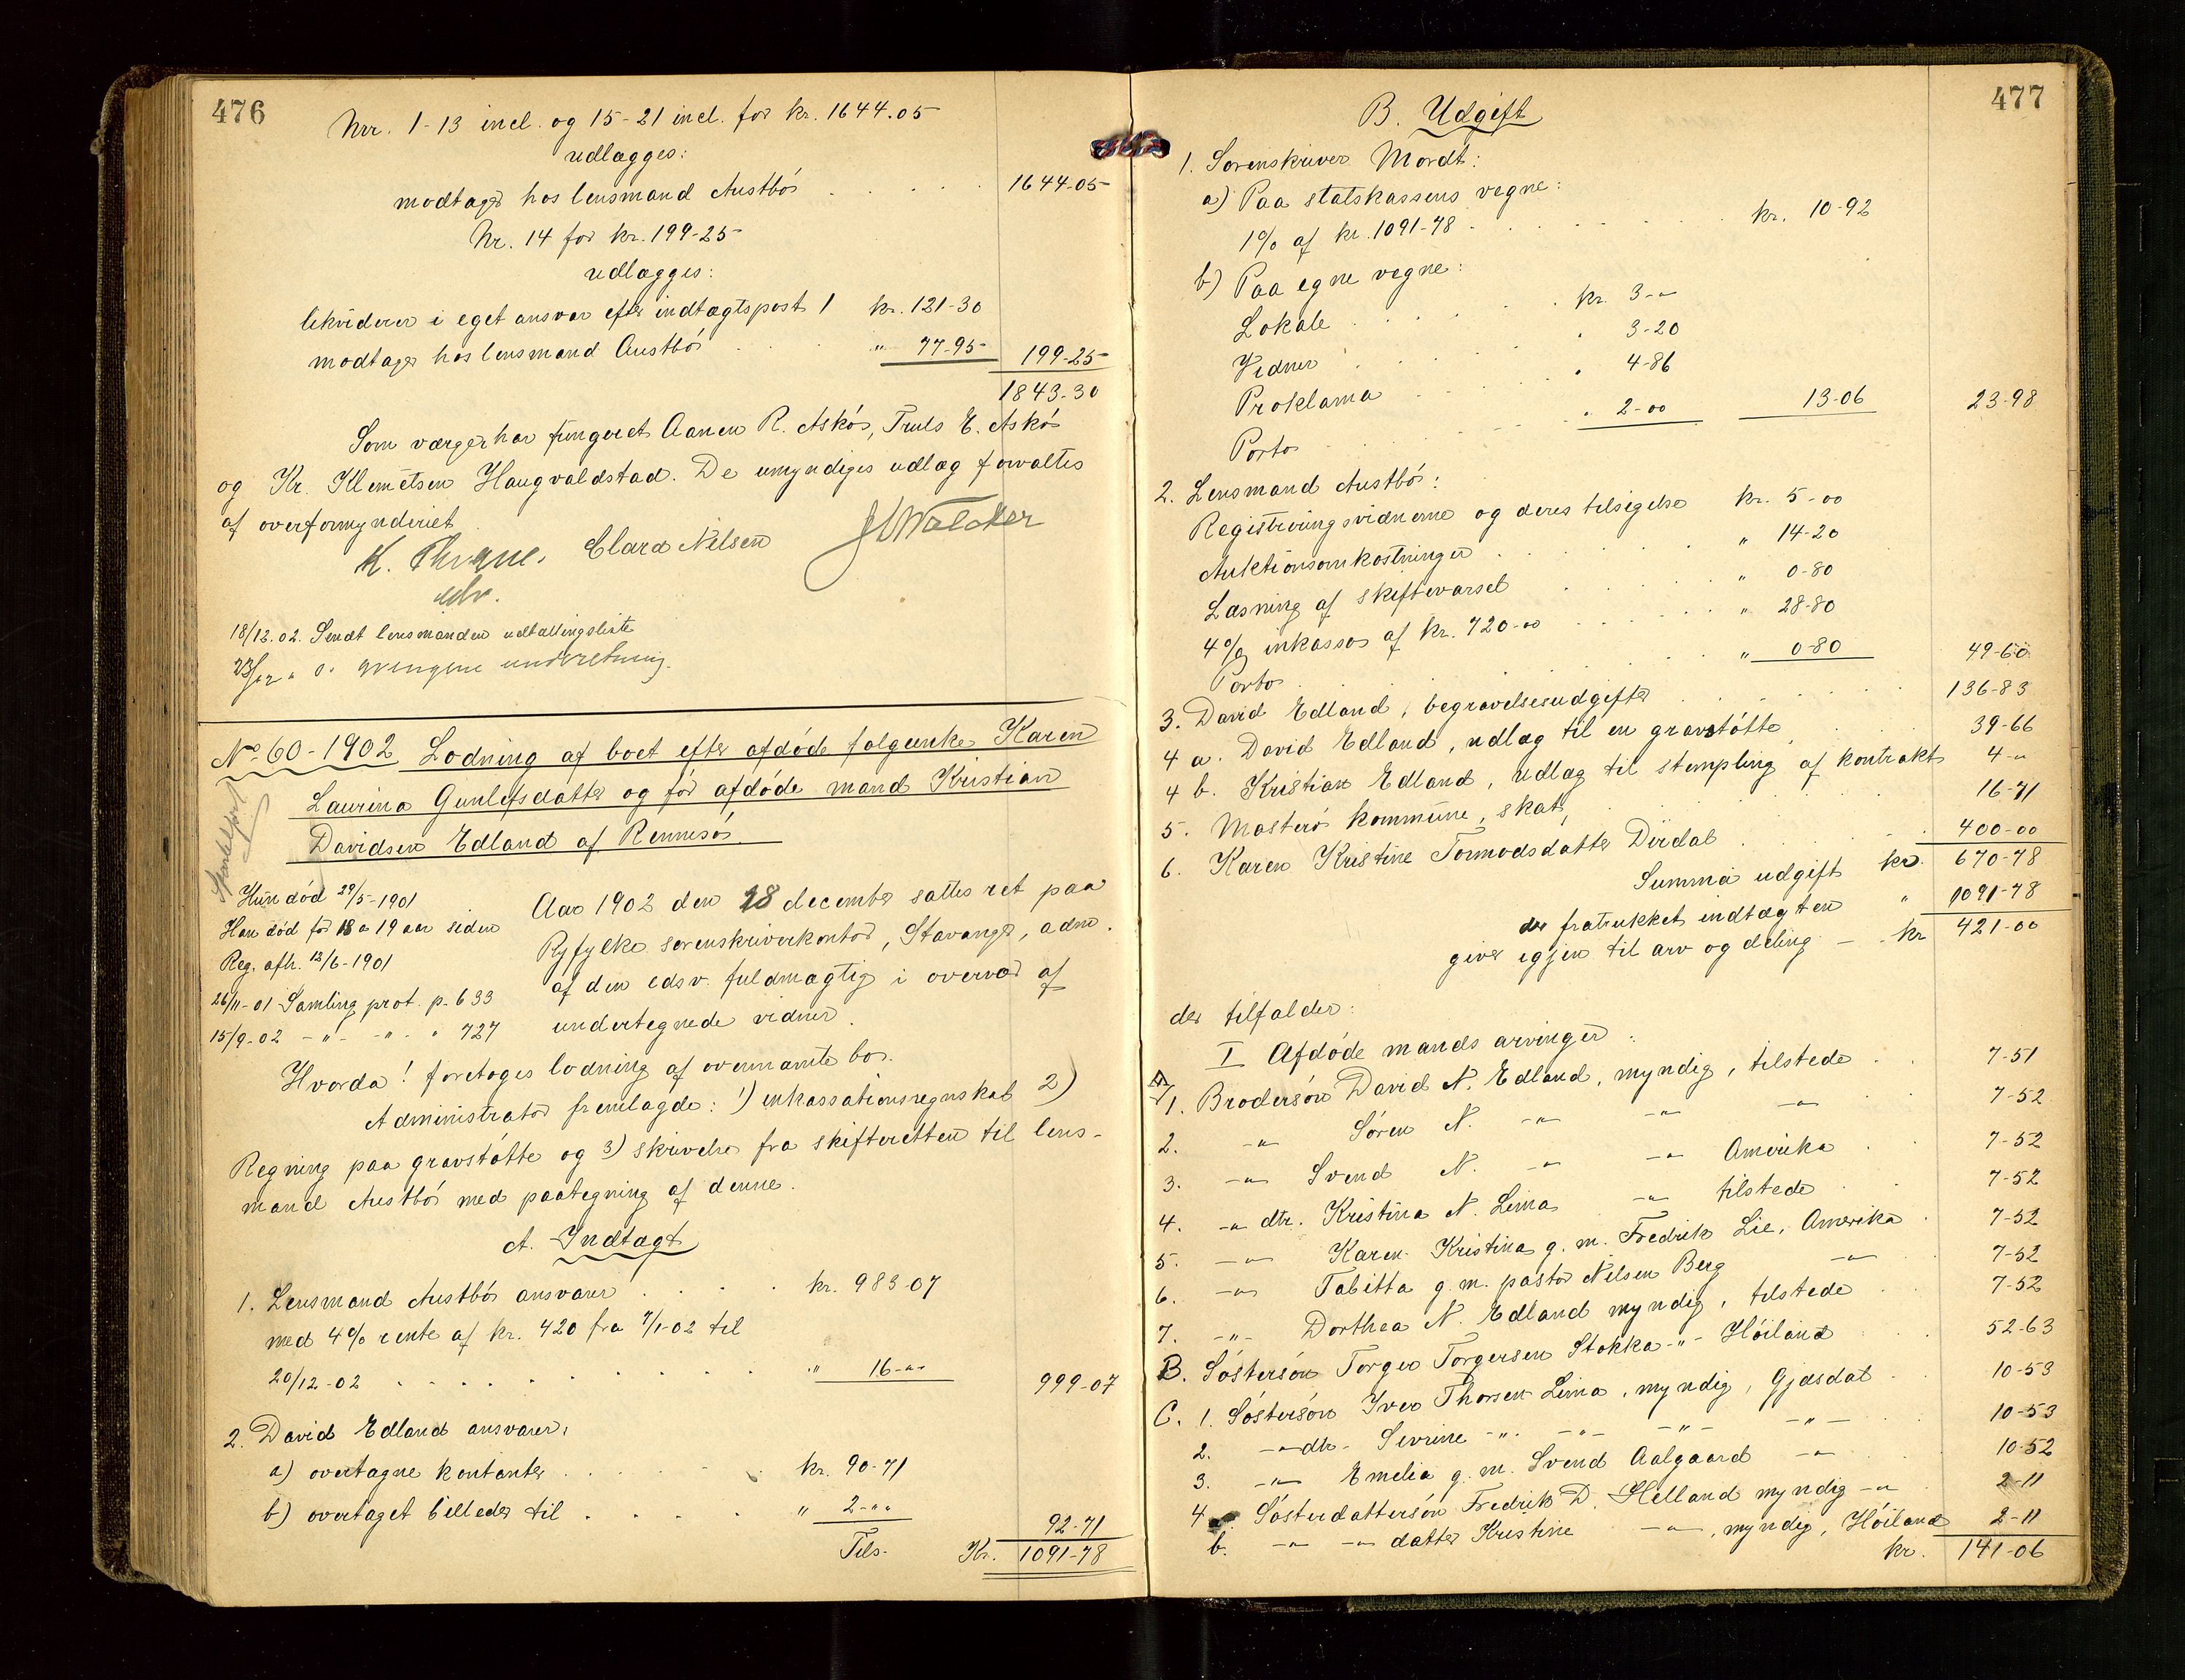 476
Nr. 1-13 incl. og 15-21 incl. for kr. 1644.05
udlægges:
modtages hos lensmand Austbö . . . . 1644-05
Nr. 14 for kr. 199-25
udlægges:
likviderer i eget ansvar efter indtægtspost 1 kr. 121-30
modtages hos lensmand Austbö . . " 77-95 199-25
1843-30
Som værger har fungeret Aanen R. Askö, Truls E. Askö
og Kr. Klemetsen Haugvaldstad. De umyndiges udlæg forvaltes
af overformynderiet
K. Thrane. Clara Nilsen
edsv.
18/12.02. Sendt lensmanden udtællingsliste
23/12 " underretning.
No 60-1902 Lodning af boet efter afdöde folgeenke Karen
Laurina Gunlefsdatter og för afdöde mand Kristian
Davidsen Edland af Rennesö.
Hun död 29/5-1901
Han död for 18 a 19 aar siden
Reg. afh. 12/6-1901
26/11-01 Samling prot. p. 633
15/9-02 -"- -"- " 727
Aar 1902 den 18 december sattes ret paa
Ryfylke sorenskriverkontor, Stavanger, adm.
af den edsv. fuldmægtig i overvær af
undertegnede vidner.
Hvorda! foretoges lodning af ovennævnte bo.
Administrator fremlagde: 1) inkassationsregnskab 2)
Regning paa gravstötte og 3) skrivelse fra skifteretten til lens-
mand Austbö med paategning af denne.
A. Indtægt
1. Lensmand Austbö ansvarer . . . . kr. 983-07
med 4% rente af kr. 420 fra 7/1-02 til
20/12-02 . . . . . . . . " 16-"" 999-07
2. David Edland ansvarer:
a) overtagne kontanter . . . . . kr. 90-71
b) overtaget billeder til . . . . " 2-"" 92-71
Tils. Kr. 1091-78
477
B. Udgift
1. Sorenskriver Mordt:
a) Paa statskassens vegne:
1% af kr. 1091-78 . . . . . . kr. 10-92
b) Paa egne vegne:
Lokale . . . . . kr. 3-"
Vidner . . . . . " 3-20
Proklama . . . . " 4-86
Porto . . . . . " 2-00 13-06 23-98
2. Lensmand Austbö:
Registreringsvidnerne og deres tilsigelse kr. 5-00
Auktionsomkostninger . . . . . " 14-20
Læsning af skiftevarsel . . . . " 0-80
4% inkasso af kr. 720-00 . . . . " 28-80
Porto . . . . . . . . " 0-80 49-60
3. David Edland, begravelsesudgifter . . . . . 136-83
4 a. David Edland, udlæg til en gravstötte . . 39-66
4 b. Kristian Edland, udlæg til stempling af kontrakt 4-"
5. Mosterö kommune, skat, . . . . . 16-71
6. Karen Kristine Tormodsdatter Dirdal . . . . 400-00
Summa udgift kr. 670-78
der fratrukket indtægten " 1091-78
giver igjen til arv og deling - . kr 421-00
der tilfalder:
I Afdöde mands arvinger:
A 1. Brodersön David N. Edland, myndig, tilstede . . 7-51
2. -"- Sören N. -"- -"- -"- 7-52
3. -"- Svend N. -"- -"- Amerika . 7-52
4. -"- dtr. Kristina N. Lima -"- tilstede . . 7-52
5. -"- Karen Kristina g. m. Fredrik Lie, Amerika . 7-52
6. -"- Tabitta g. m. pastor Nilsen Berg -"- 7-52
7. -"- Dorthea N. Edland myndig, tilstede . . 7-52
B. Söstersön Torger Torgersen Stokka -"- Höiland . . 52-63
C. 1. Söstersön Iver Thorsen Lima, myndig, Gjæsdal . . 10-53
2. -"- dtr. Sivrine -"- -"- -"- -"- . . 10-53
3. -"- Emelia g. m. Svend Aalgaard -"- . . 10-52
4 Sösterdattersön Fredrik D. Helland myndig -"- 2-11
b. -"- -"- datter Kristine -"-, myndig, Höiland 2-11
kr. 141-06